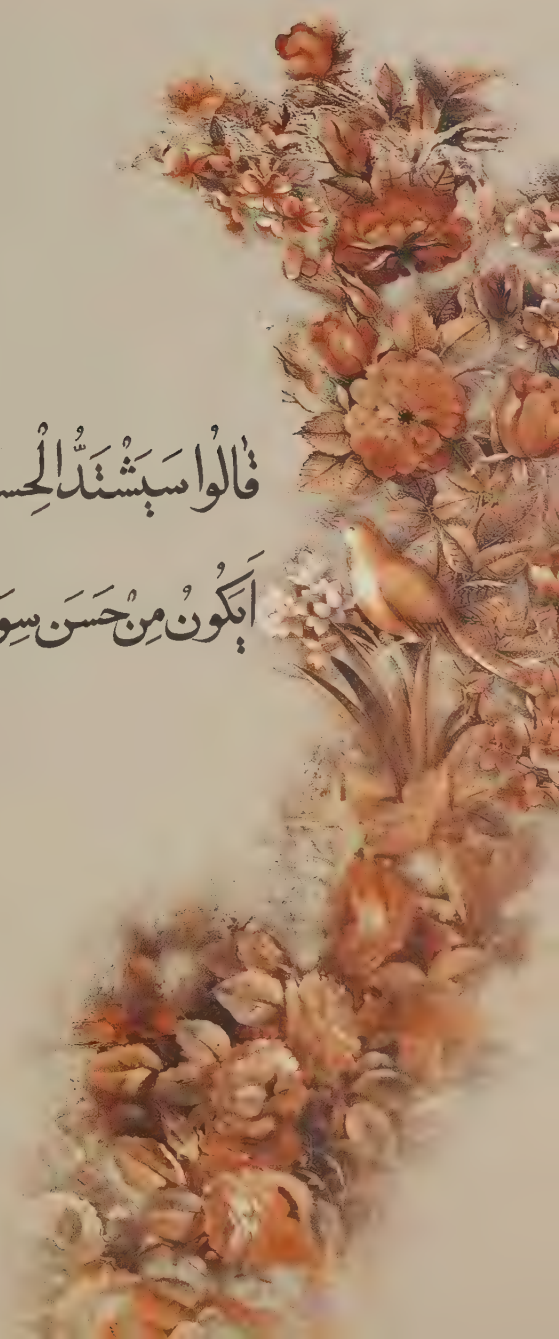 قَالُوا سَيَشْتَدُّ الْحس
أَيَكُونُ مِنْ حَسَن سِو